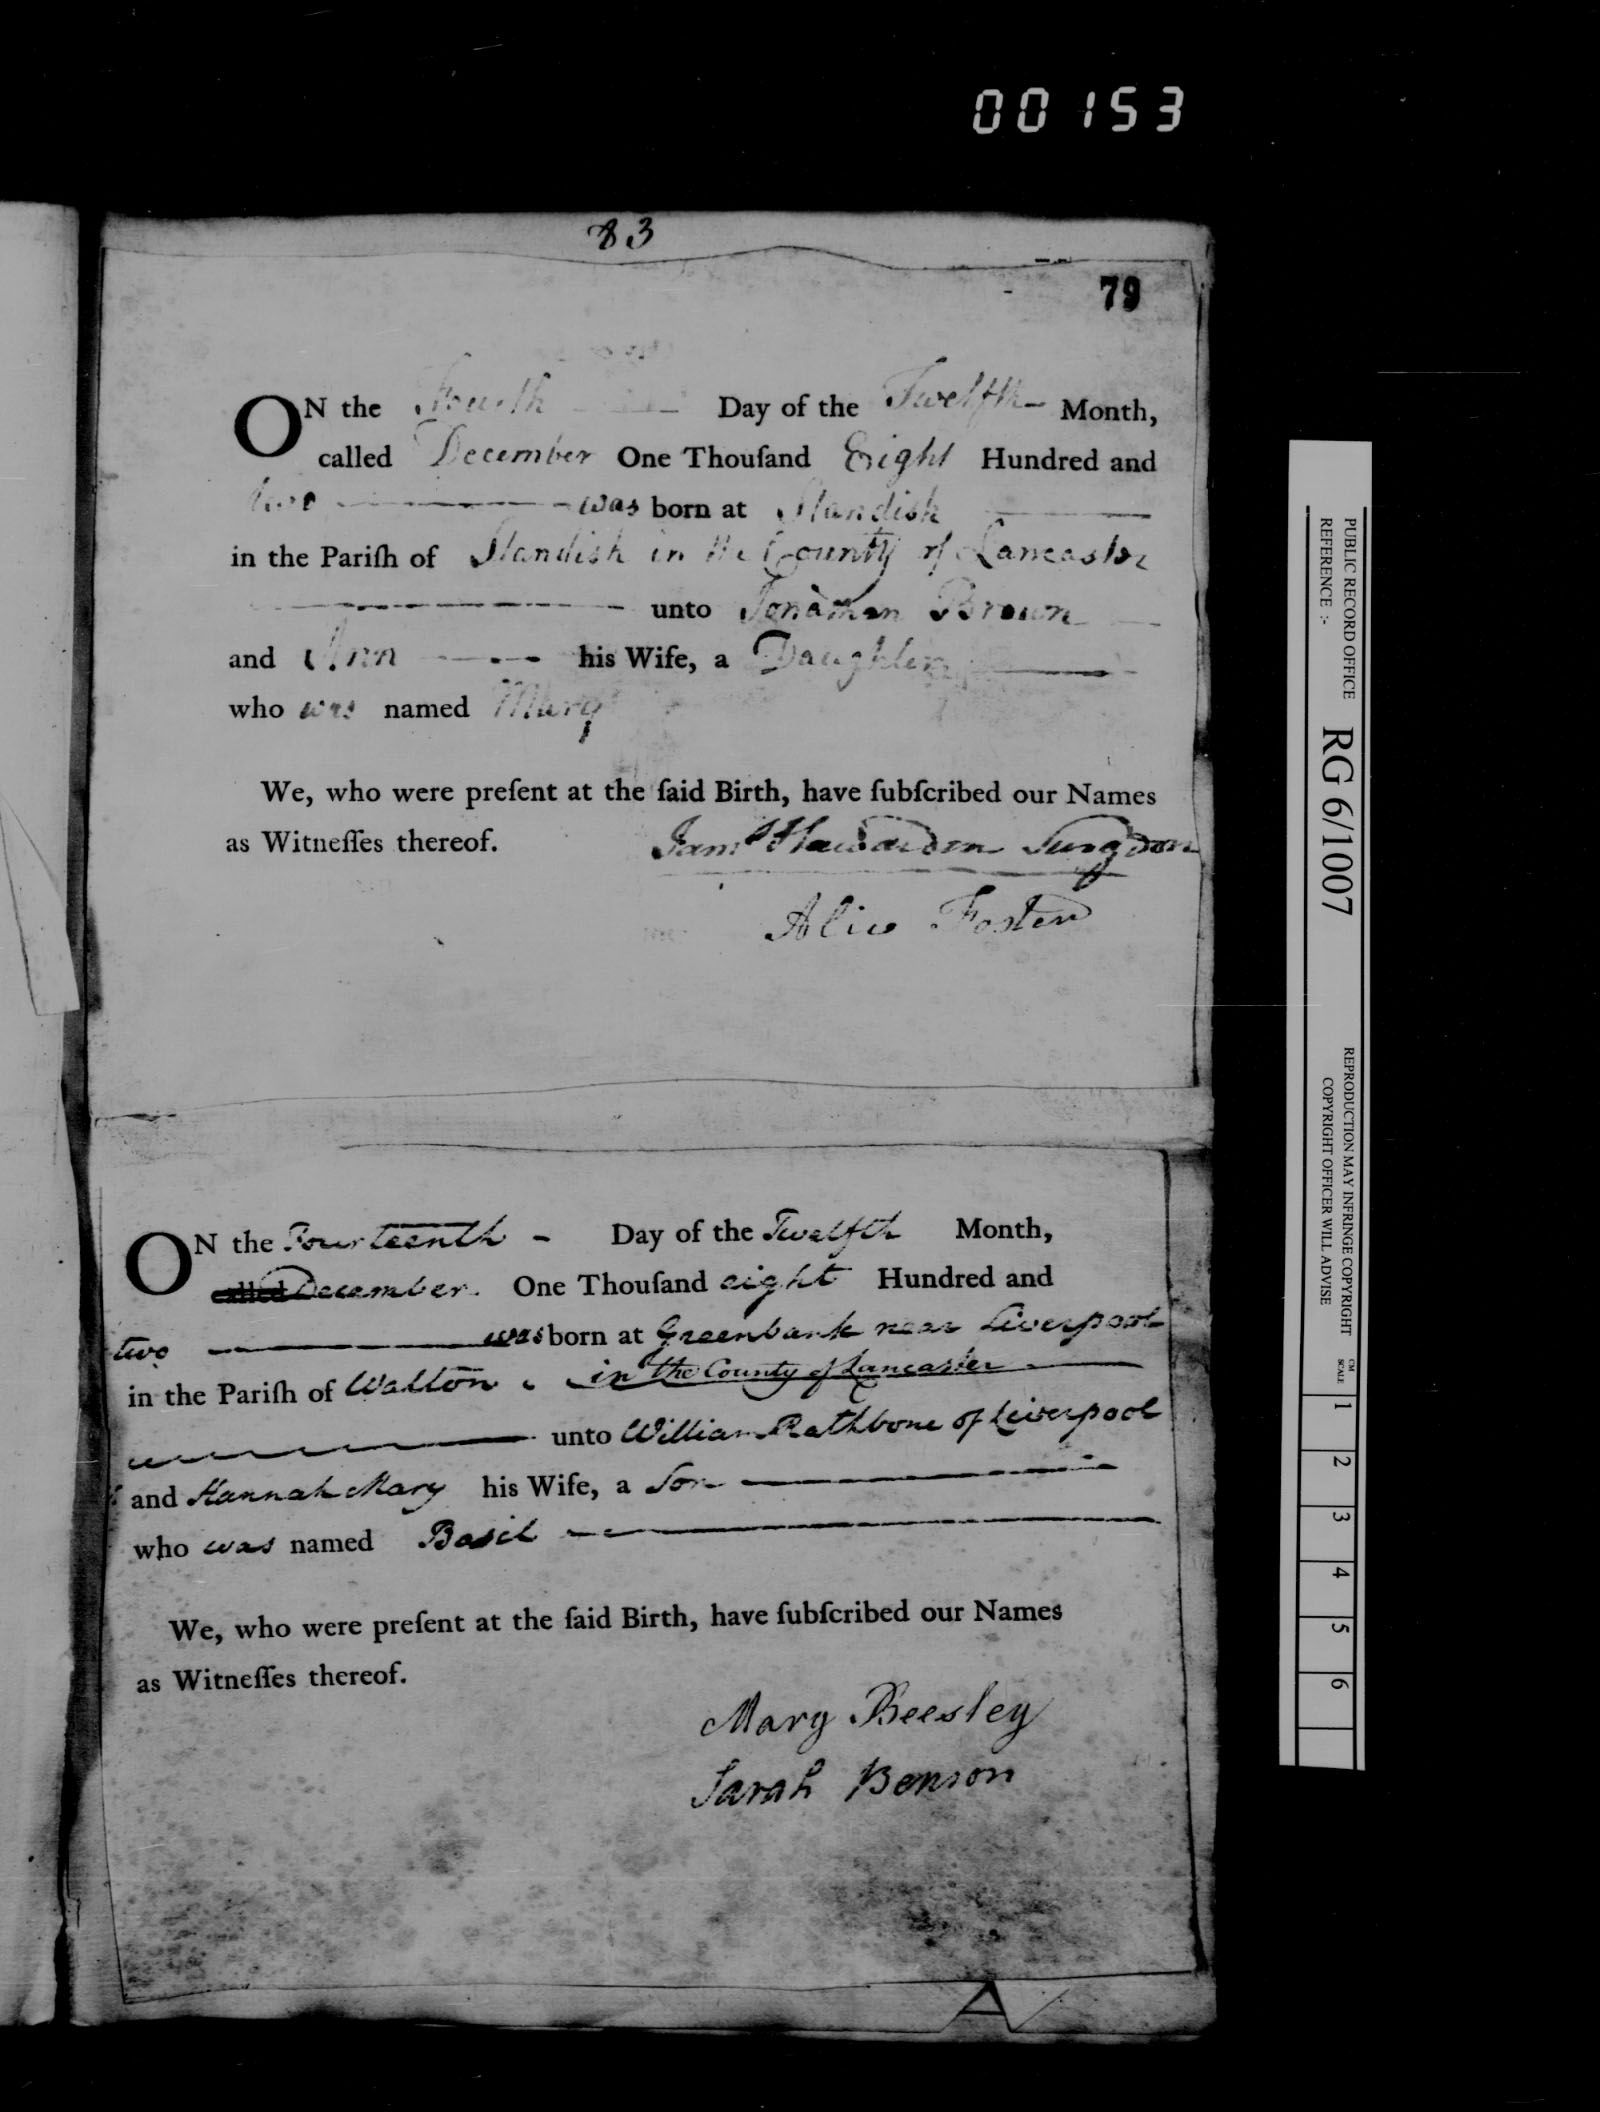 00153
83
79
ON the Fourth Day of the Twelfth Month,
called December One Thouſand Eight Hundred and
two was born at Standish
in the Pariſh of Standish in the County of Lancaster
unto Jonathan Brown
and Ann his Wife, a Daughter
who was named Mary
We, who were preſent at the ſaid Birth, have ſubſcribed our Names
as Witneſſes thereof. Jams Hawarden Surgeon
Alice Foster
ON the Fourteenth - Day of the Twelfth Month,
called December. One Thouſand eight Hundred and
two was born at Greenbank near Liverpool
in the Pariſh of Walton in the County of Lancaster
unto William Rathbone of Liverpool
and Hannah Mary his Wife, a Son
who was named Basil
We, who were preſent at the ſaid Birth, have ſubſcribed our Names
as Witneſſes thereof.
Mary Beesley
Sarah Benson
A
PUBLIC RECORD OFFICE
REFERENCE :-
RG 6/1007
REPRODUCTION MAY INFRINGE COPYRIGHT
COPYRIGHT OFFICER WILL ADVISE
CM
SCALE
1 2 3 4 5 6